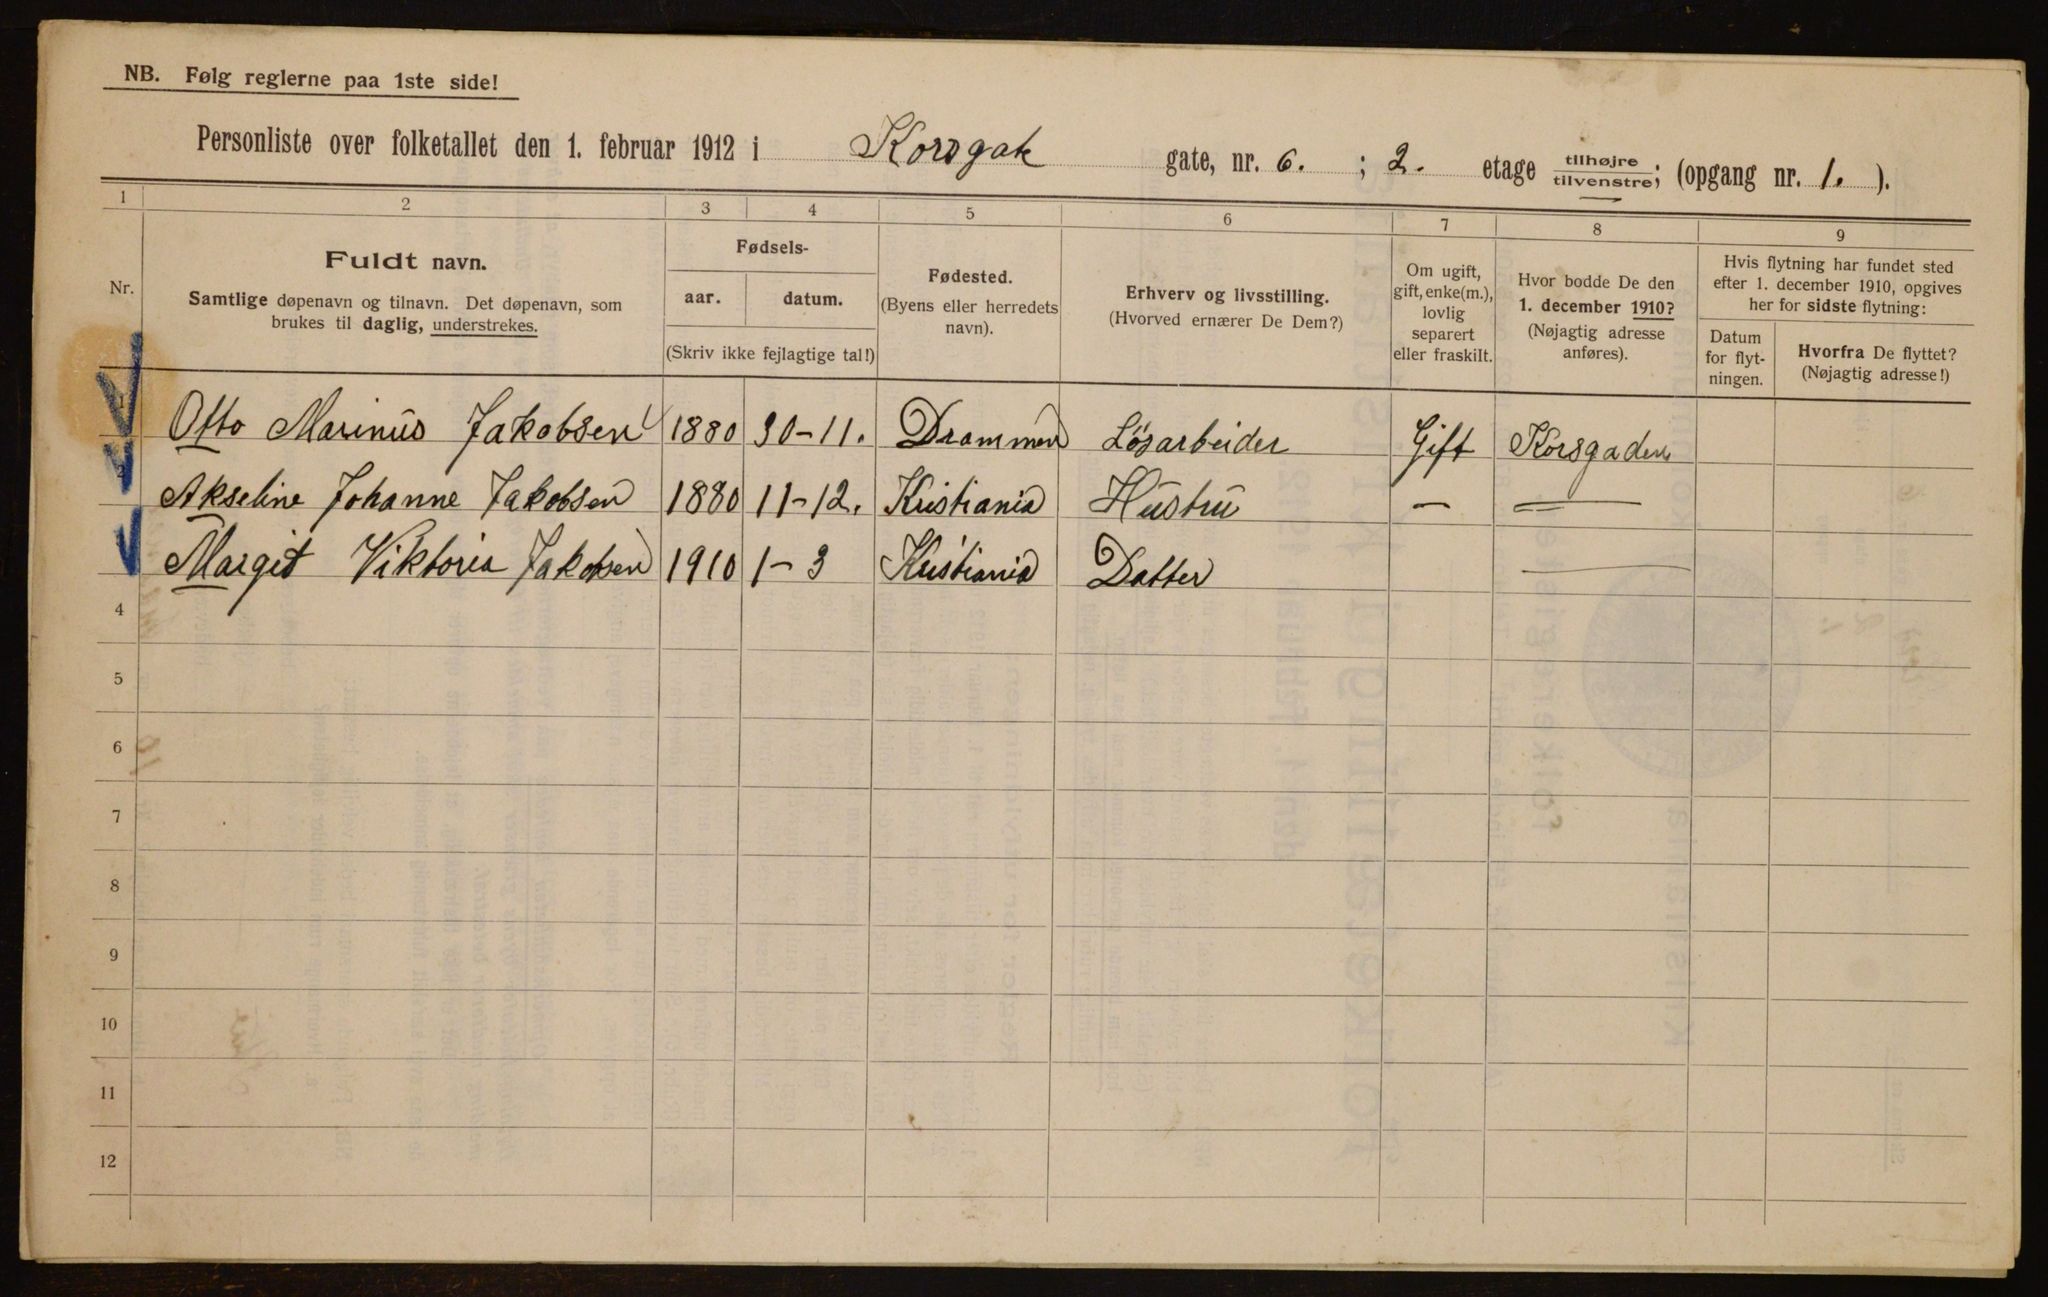 NB. Følg reglerne paa 1ste side!
Personliste over folketallet den 1. februar 1912 i Korsgate gate, nr. 6. ; 2. etage tilhøjre tilvenstre; (opgang nr. 1. ).
1 2 3 4 5 6 7 8 9
Nr.
Fuldt navn.
Samtlige døpenavn og tilnavn. Det døpenavn, som
brukes til daglig, understrekes.
Fødsels-
aar. datum.
(Skriv ikke fejlagtige tal!)
Fødested.
(Byens eller herredets
navn).
Erhverv og livsstilling.
(Hvorved ernærer De Dem?)
Om ugift,
gift, enke(m.),
lovlig
separert
eller fraskilt.
Hvor bodde De den
1. december 1910?
(Nøjagtig adresse
anføres).
Hvis flytning har fundet sted
efter 1. december 1910, opgives
her for sidste flytning:
Datum
for flyt-
ningen.
Hvorfra De flyttet?
(Nøjagtig adresse!)
1 Otto Marinus Jakobsen 1880 30-11. Drammen Løsarbeider Gift Korsgaden
2 Akseline Johanne Jakobsen 1880 11-12. Kristiania Hustru — =
Margit Viktoria Jakobsen 1910 1-3 Kristiania Datter —
4
5
6
7
8
9
10
11
12